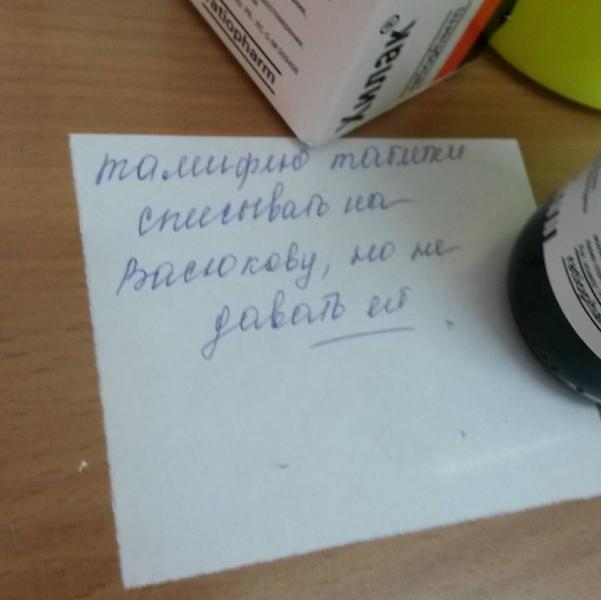 ratiopharm
Хилак®
ratiopharm
тамифлю таблетки
списывать на
Васюкову, но не
давать ей